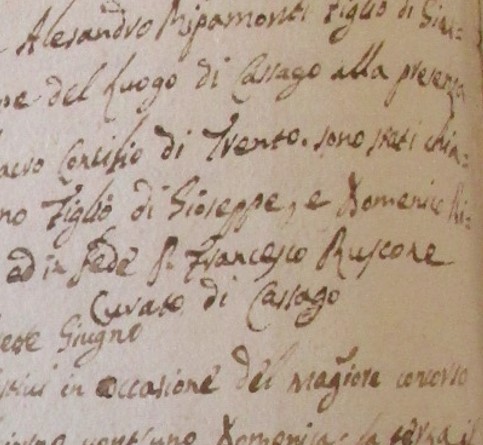 Alesandro Ripamonti figlio di Gian=
ne del luogo di Cassago alla presenza
acro Concilio di Trento. sono stati chia=
no figlio di Gioseppe, e Domenico Ri=
ed in fede P. Francesco Ruscone
Curato di Cassago
Giugno
in occasione del magiore concorso
vent'uno Domenica